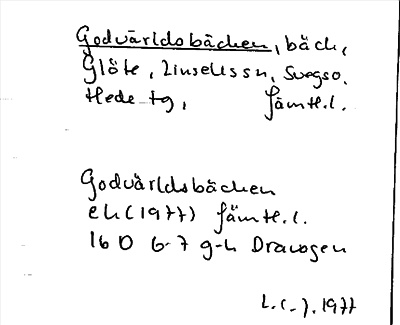 Godvärldsbäcken, bäck,
Glöte, Linsells sn, Svegs o.
Hede tg, Jämtl.l.
Godvärldsbäcken
ek (1977) Jämtl.l.
16 D 6-7 g-h Dravagen
1977